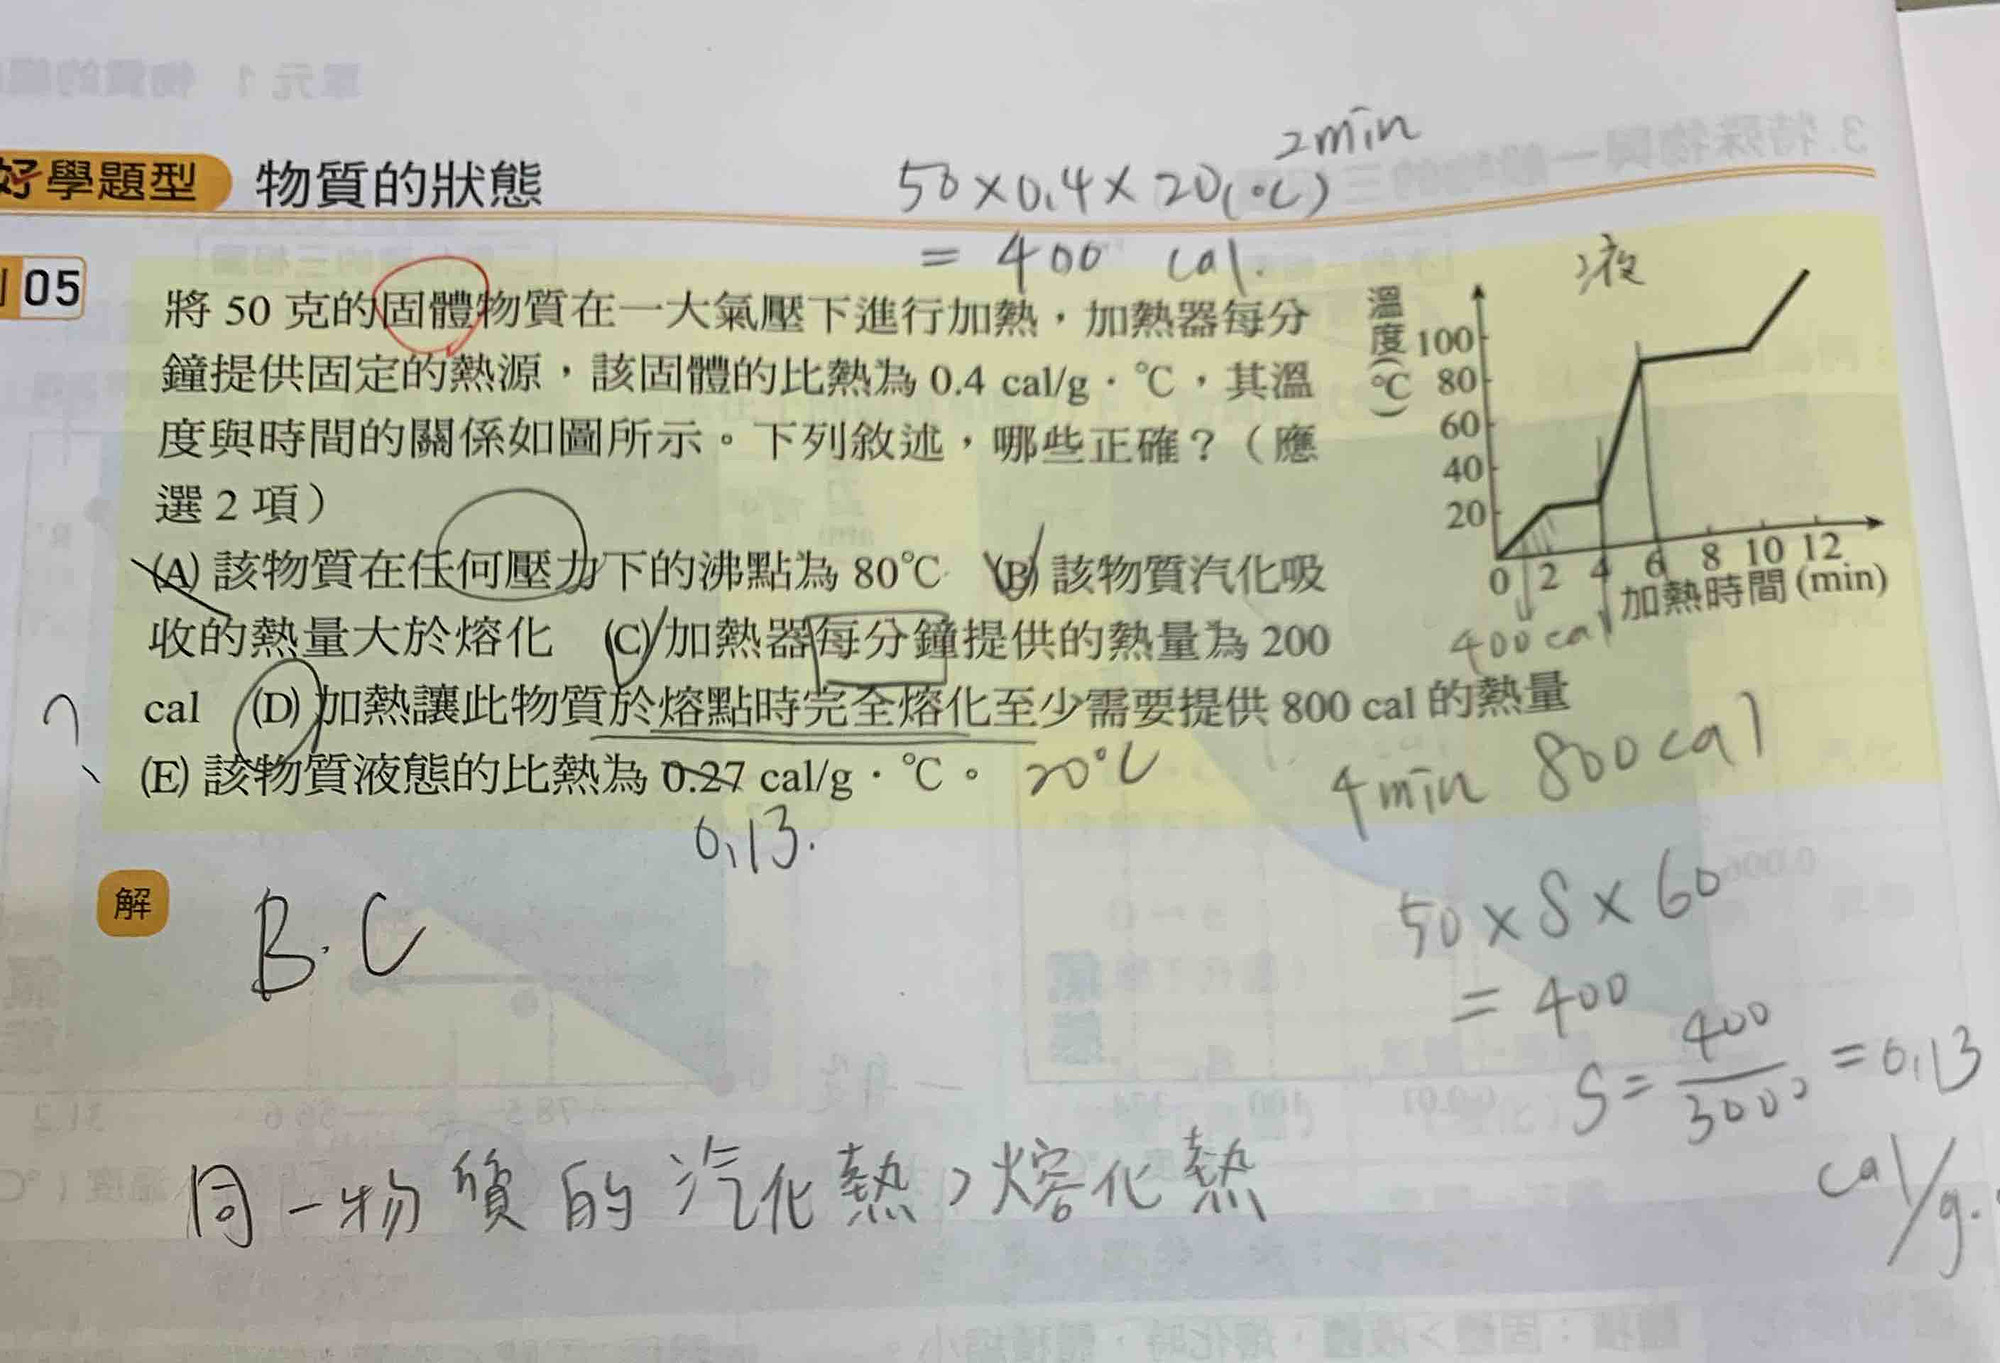 好學題型 物質的狀態
2min
50×0.4×20(°C)
= 400 cal.
05
將 50 克的固體物質在一大氣壓下進行加熱，加熱器每分
鐘提供固定的熱源，該固體的比熱為 0.4 cal/g．℃，其溫
度與時間的關係如圖所示。下列敘述，哪些正確？（應
選 2 項）
(A) 該物質在任何壓力下的沸點為 80℃ (B) 該物質汽化吸
收的熱量大於熔化 (C) 加熱器每分鐘提供的熱量為 200
cal (D) 加熱讓此物質於熔點時完全熔化至少需要提供 800 cal 的熱量
(E) 該物質液態的比熱為 0.27 cal/g．℃。
液
溫度(℃)
100
80
60
40
20
0 2 4 6 8 10 12
加熱時間 (min)
400 cal
?
20°C
4min 800cal
0.13.
解
B. C
50×S×60
= 400
S = 400/3000 = 0.13
cal/g.
同一物質的汽化熱>熔化熱